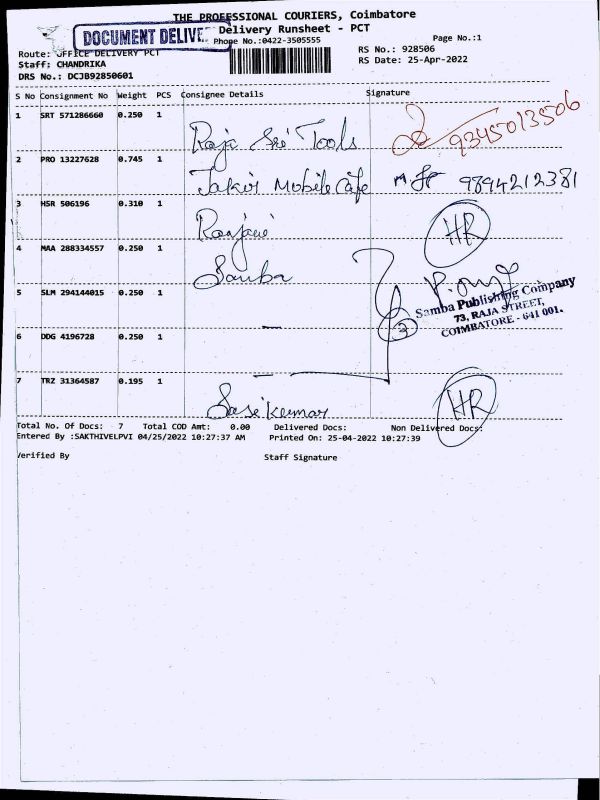 THE PROFESSIONAL COURIERS, Coimbatore
DOCUMENT DELIVE
Delivery Runsheet - PCT
Phone No.:0422-3505555
Page No.:1
Route: OFFICE DELIVERY PCT
RS No.: 928506
Staff: CHANDRIKA
RS Date: 25-Apr-2022
DRS No.: DCJB92850601
S No Consignment No Weight PCS Consignee Details Signature
1 SRT 571286660 0.250 1 Raja Sri Tools 9345013506
2 PRO 13227628 0.745 1 Jakir Mobile Cafe 9894212381
3 HSR 506196 0.310 1 Ranjani HR
4 MAA 288334557 0.250 1 Samba
5 SLM 294144015 0.250 1
Samba Publishing Company
73, RAJA STREET,
COIMBATORE - 641 001.
3
6 DDG 4196728 0.250 1
7 TRZ 31364587 0.195 1 Sasikumar HR
Total No. Of Docs: 7 Total COD Amt: 0.00 Delivered Docs: Non Delivered Docs:
Entered By :SAKTHIVELPVI 04/25/2022 10:27:37 AM Printed On: 25-04-2022 10:27:39
Verified By Staff Signature